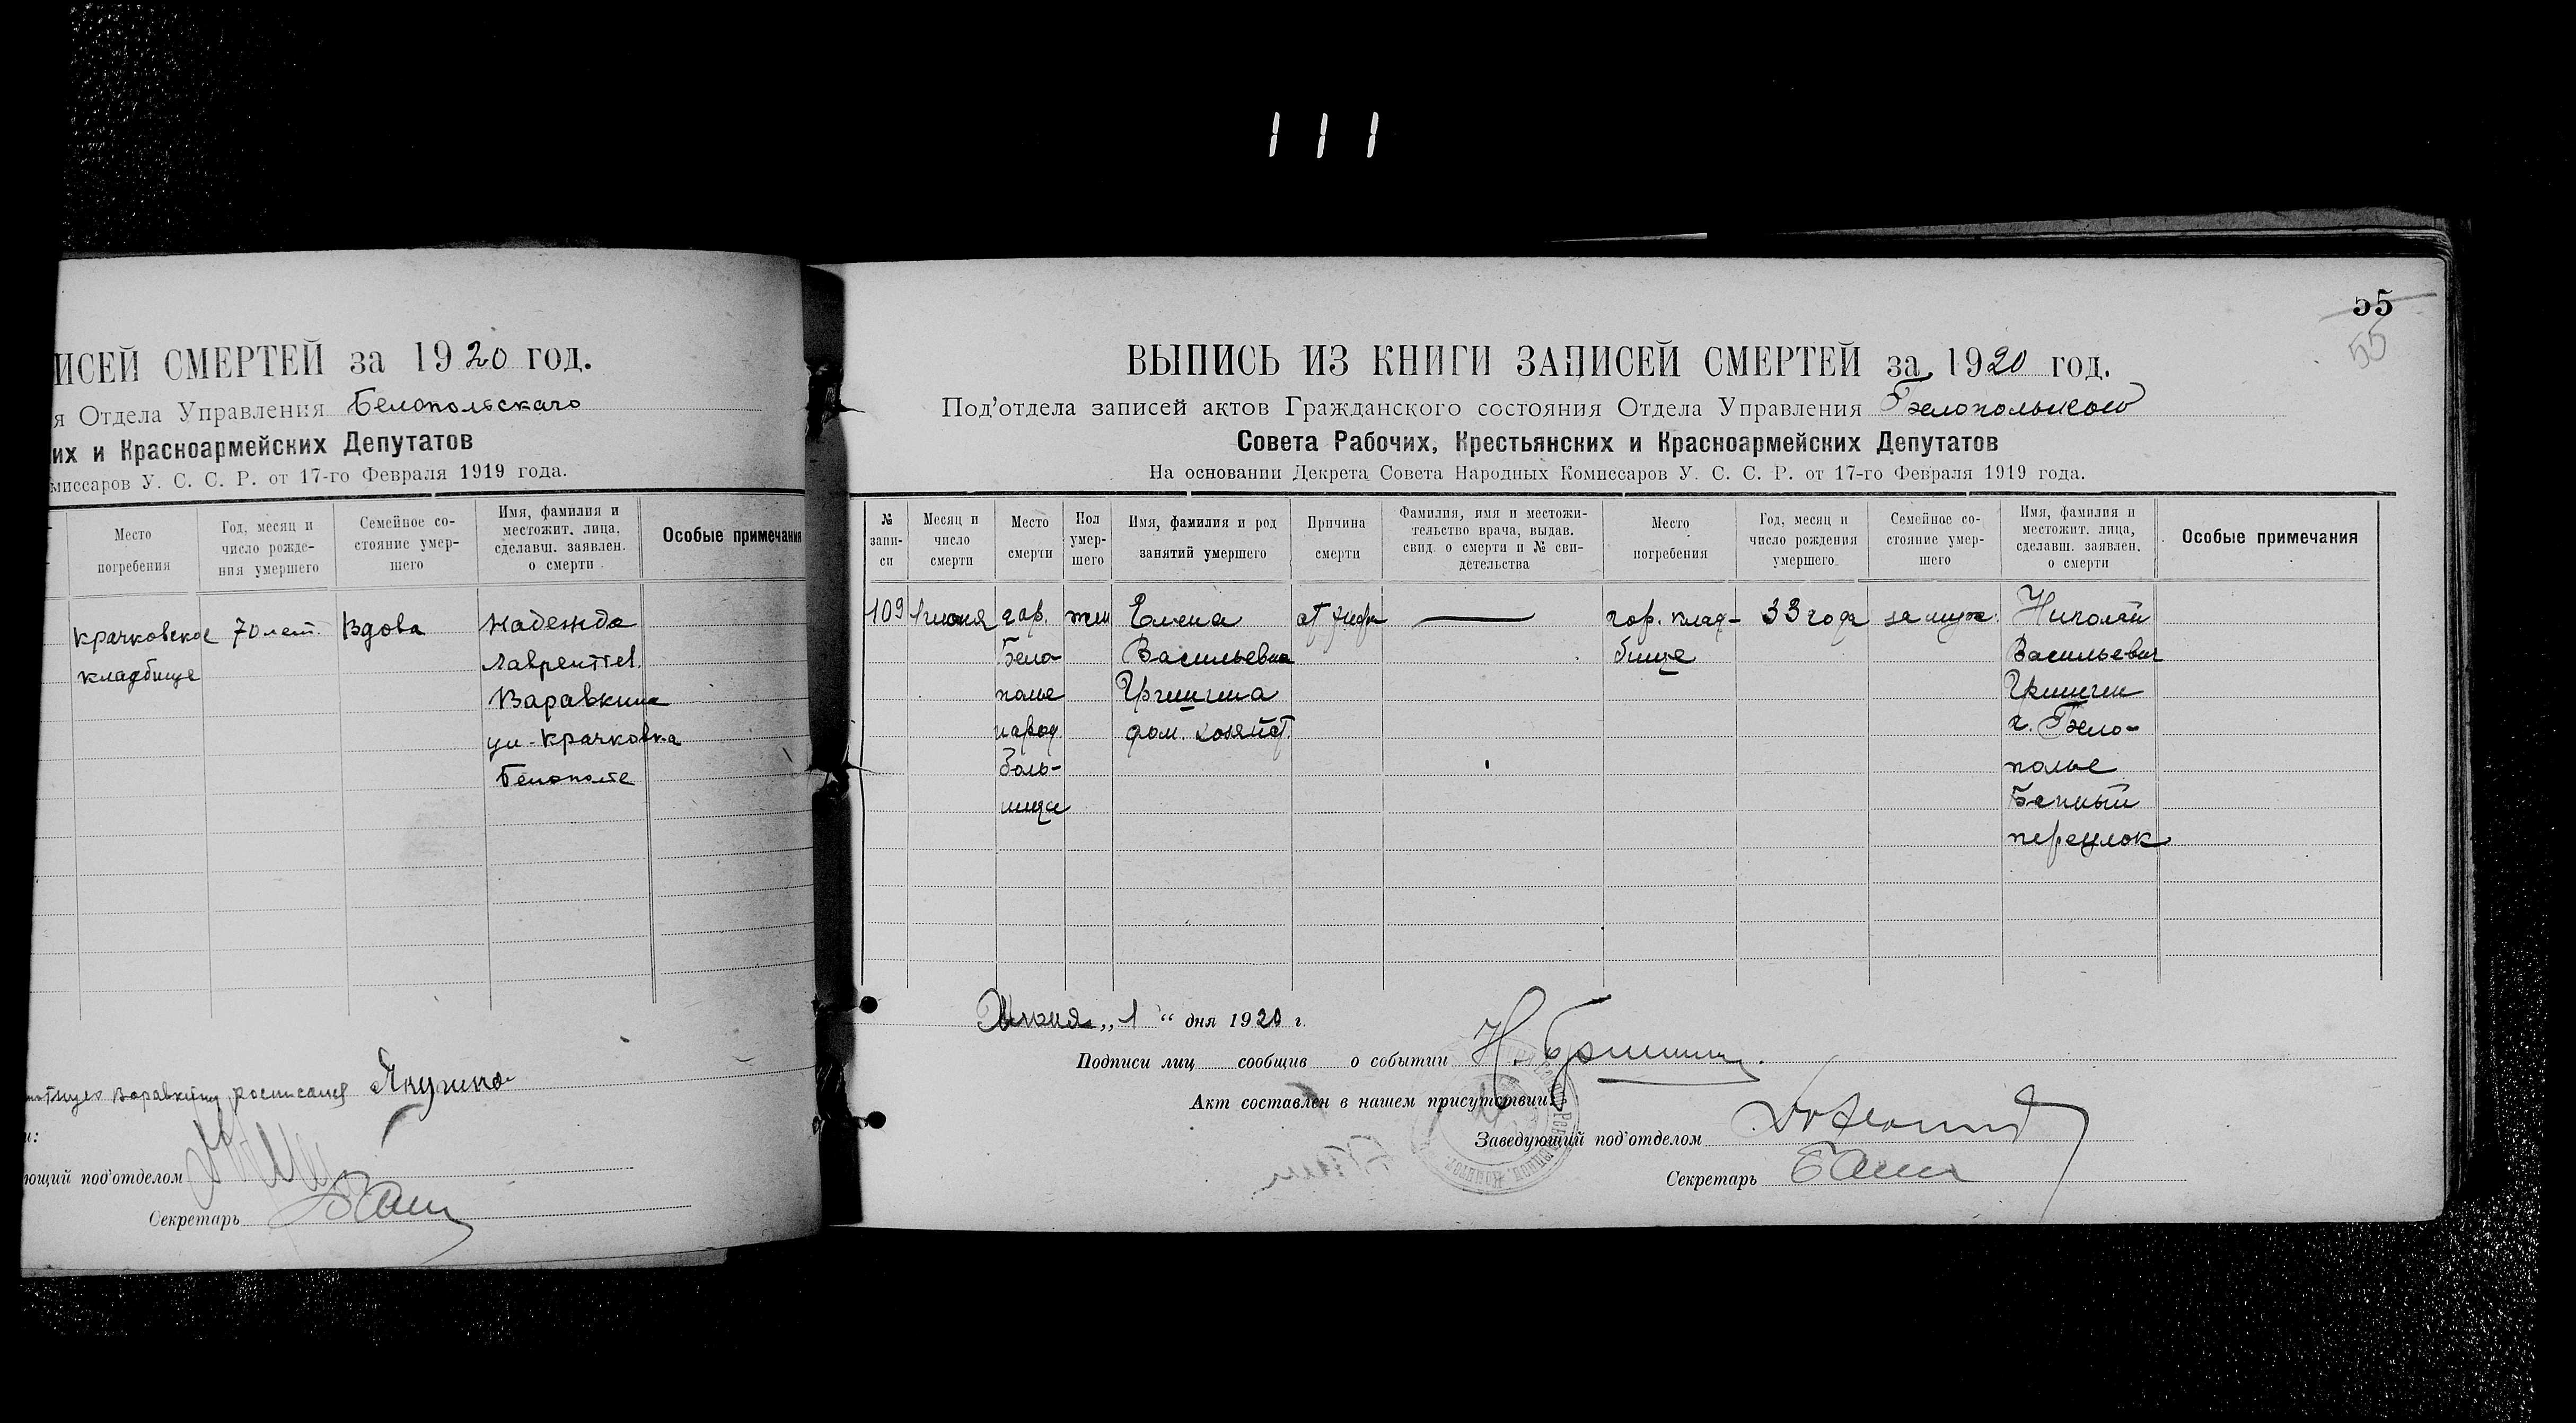 111
ИСЕЙ СМЕРТЕЙ за 1920 год.
я Отдела Управления Белопольскаго
их и Красноармейских Депутатов
миссаров У. С. С. Р. от 17-го Февраля 1919 года.
Место погребения
Год, месяц и число рожде- ния умершего
Семейное со- стояние умер- шего
Имя, фамилия и местожит. лица, сделавш. заявлен. о смерти
Особые примечания
Крачковское 70 лет. Вдова Надежда
кладбище Лаврентьев.
Варавкина
ул. Крачковка
Белополье
Варавкину росписался
ующий под'отделом
Секретарь
55
55
ВЫПИСЬ ИЗ КНИГИ ЗАПИСЕЙ СМЕРТЕЙ за 1920 год.
Под'отдела записей актов Гражданского состояния Отдела Управления Белопольского
Совета Рабочих, Крестьянских и Красноармейских Депутатов
На основании Декрета Совета Народных Комиссаров У. С. С. Р. от 17-го Февраля 1919 года.
№ запи- си
Месяц и число смерти
Место смерти
Пол умер- шего
Имя, фамилия и род занятий умершего
Причина смерти
Фамилия, имя и местожи- тельство врача, выдав. свид. о смерти и № сви- детельства
Место погребения
Год, месяц и число рождения умершего
Семейное со- стояние умер- шего
Имя, фамилия и местожит. лица, сделавш. заявлен. о смерти
Особые примечания
109 1 июня гор. жен Елена от гор. клад- 33 года замуж. Николай
Бело- Васильевна бище Васильевич
полье Гришина Гришин
народ. дом. хозяйст. г. Бело-
боль- полье
ница Банный
переулок
Июня „1“ дня 1920 г.
Подписи лиц сообщив о событии Н. Гришин
Акт составлен в нашем присутствии:
Заведующий под'отделом
Секретарь